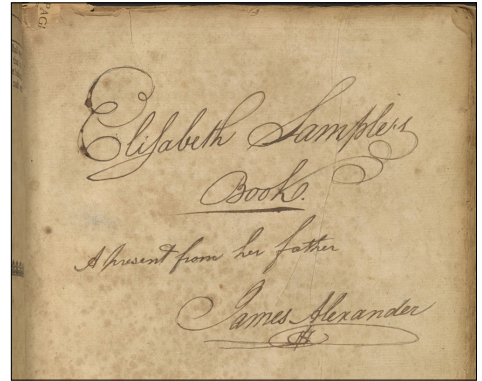 PAGI
Elisabeth Samplers
Book.
A present from her father
James Alexander